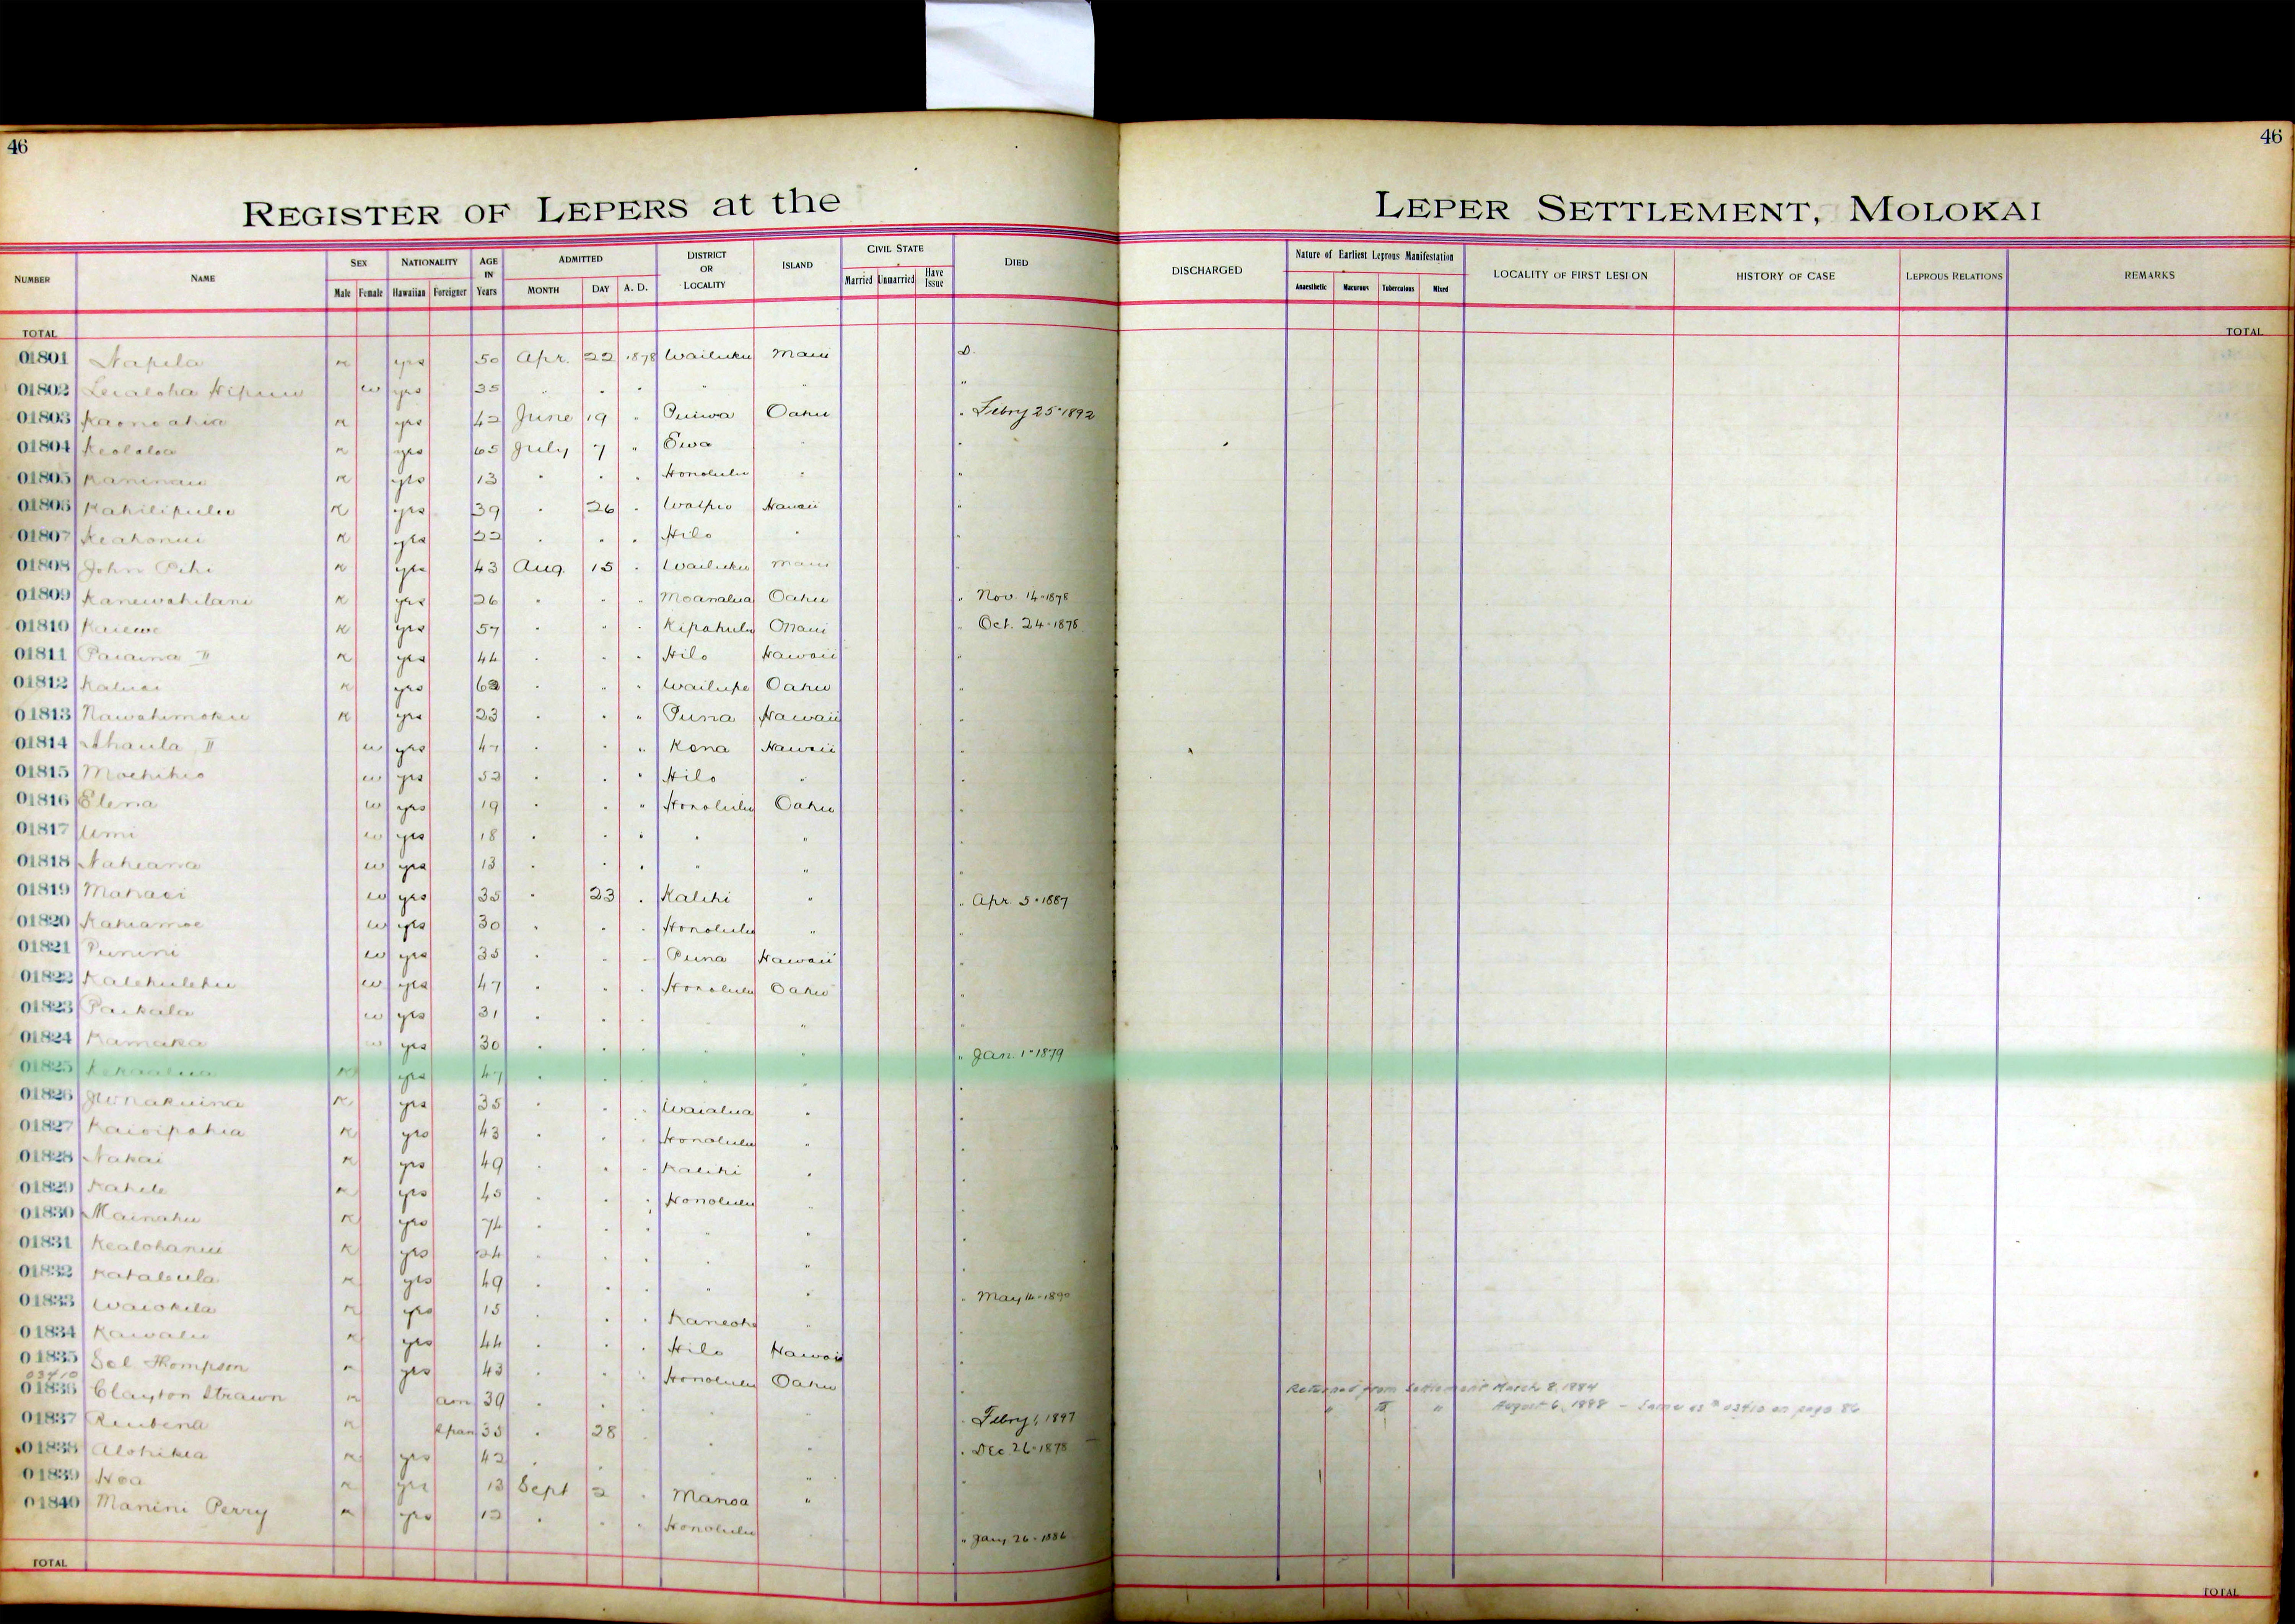 46
46
REGISTER OF LEPERS at the LEPER SETTLEMENT, MOLOKAI
NUMBER NAME SEX Male Female NATIONALITY Hawaiian Foreigner AGE IN Years ADMITTED MONTH DAY A. D. DISTRICT OR LOCALITY ISLAND CIVIL STATE Married Unmarried Have Issue DIED DISCHARGED Nature of Earliest Leprous Manifestation Anaesthetic Macurous Tuberculous Mixed LOCALITY OF FIRST LESION HISTORY OF CASE LEPROUS RELATIONS REMARKS
TOTAL TOTAL
01801 Napela yes 50 Apr. 22 1878 Wailuku Maui D.
01802 w yes 35 " " " " " "
01803 Kaonoahia yes 42 June 19 " Puiwa Oahu " Febry 25 1892
01804 Keololoa yes 65 July 7 " Ewa " "
01805 Kaninau yes 13 " " " Honolulu " "
01806 Kahilipulu yes 39 " 26 " Waipio Hawaii "
01807 Keahonui yes 22 " " " Hilo " "
01808 John yes 43 Aug. 15 " Wailuku Maui "
01809 Kanewahilani yes 26 " " " Moanalua Oahu " Nov. 14-1878
01810 Kaiewe yes 57 " " " Kipahulu Maui " Oct. 24-1878
01811 Paiaina II yes 44 " " " Hilo Hawaii "
01812 yes " " " Wailupe Oahu "
01813 Nawahimoku yes 23 " " " Puna Hawaii "
01814 Ahaula II w yes 47 " " " Kona Hawaii "
01815 w yes 52 " " " Hilo " "
01816 Elena w yes 19 " " " Honolulu Oahu "
01817 Umi w yes 18 " " " " " "
01818 w yes 13 " " " " " "
01819 w yes 35 " 23 " Kalihi " " Apr. 5-1887
01820 Kahiamoe w yes 30 " " " Honolulu " "
01821 Punini w yes 35 " " " Puna Hawaii "
01822 Kalehulehu w yes 47 " " " Honolulu Oahu "
01823 Paikala w yes 31 " " " " " "
01824 Kamaka w yes 30 " " " " " " Jan. 1-1879
01825 yes 47 " " " " " "
01826 yes 35 " " " Waialua " "
01827 Kaioipohia yes 43 " " " Honolulu " "
01828 Nakai yes 49 " " " Kalihi " "
01829 Kahele yes 45 " " " Honolulu " "
01830 Mainahu yes 74 " " " " " "
01831 Kealohanui yes 24 " " " " " "
01832 yes 49 " " " " " " May 14-1890
01833 Waiokila yes 15 " " " Kaneohe " "
01834 Kawalu yes 44 " " " Hilo Hawaii "
01835 Sol Thompson yes 43 " " " Honolulu Oahu "
03410
01836 Clayton Strawn am 39 " " " " " " Febry 1, 1897 Returned from Settlement March 8, 1884
" " " August 6, 1888 - Same as # 03410 on page 86
01837 Reubena 35 " 28 " " " " Dec 26-1878
01838 Alohikea yes 42 " " " " " "
01839 Hoa yes 13 Sept 2 " Manoa " "
01840 Manini Perry yes 12 " " " Honolulu " Jany 26-1886
TOTAL TOTAL